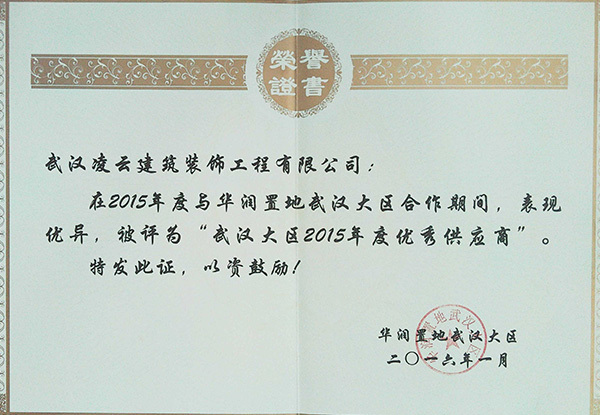 榮譽
證書
武汉凌云建筑装饰工程有限公司：
在2015年度与华润置地武汉大区合作期间，表现
优异，被评为“武汉大区2015年度优秀供应商”。
特发此证，以资鼓励！
华润置地武汉大区
二〇一六年一月